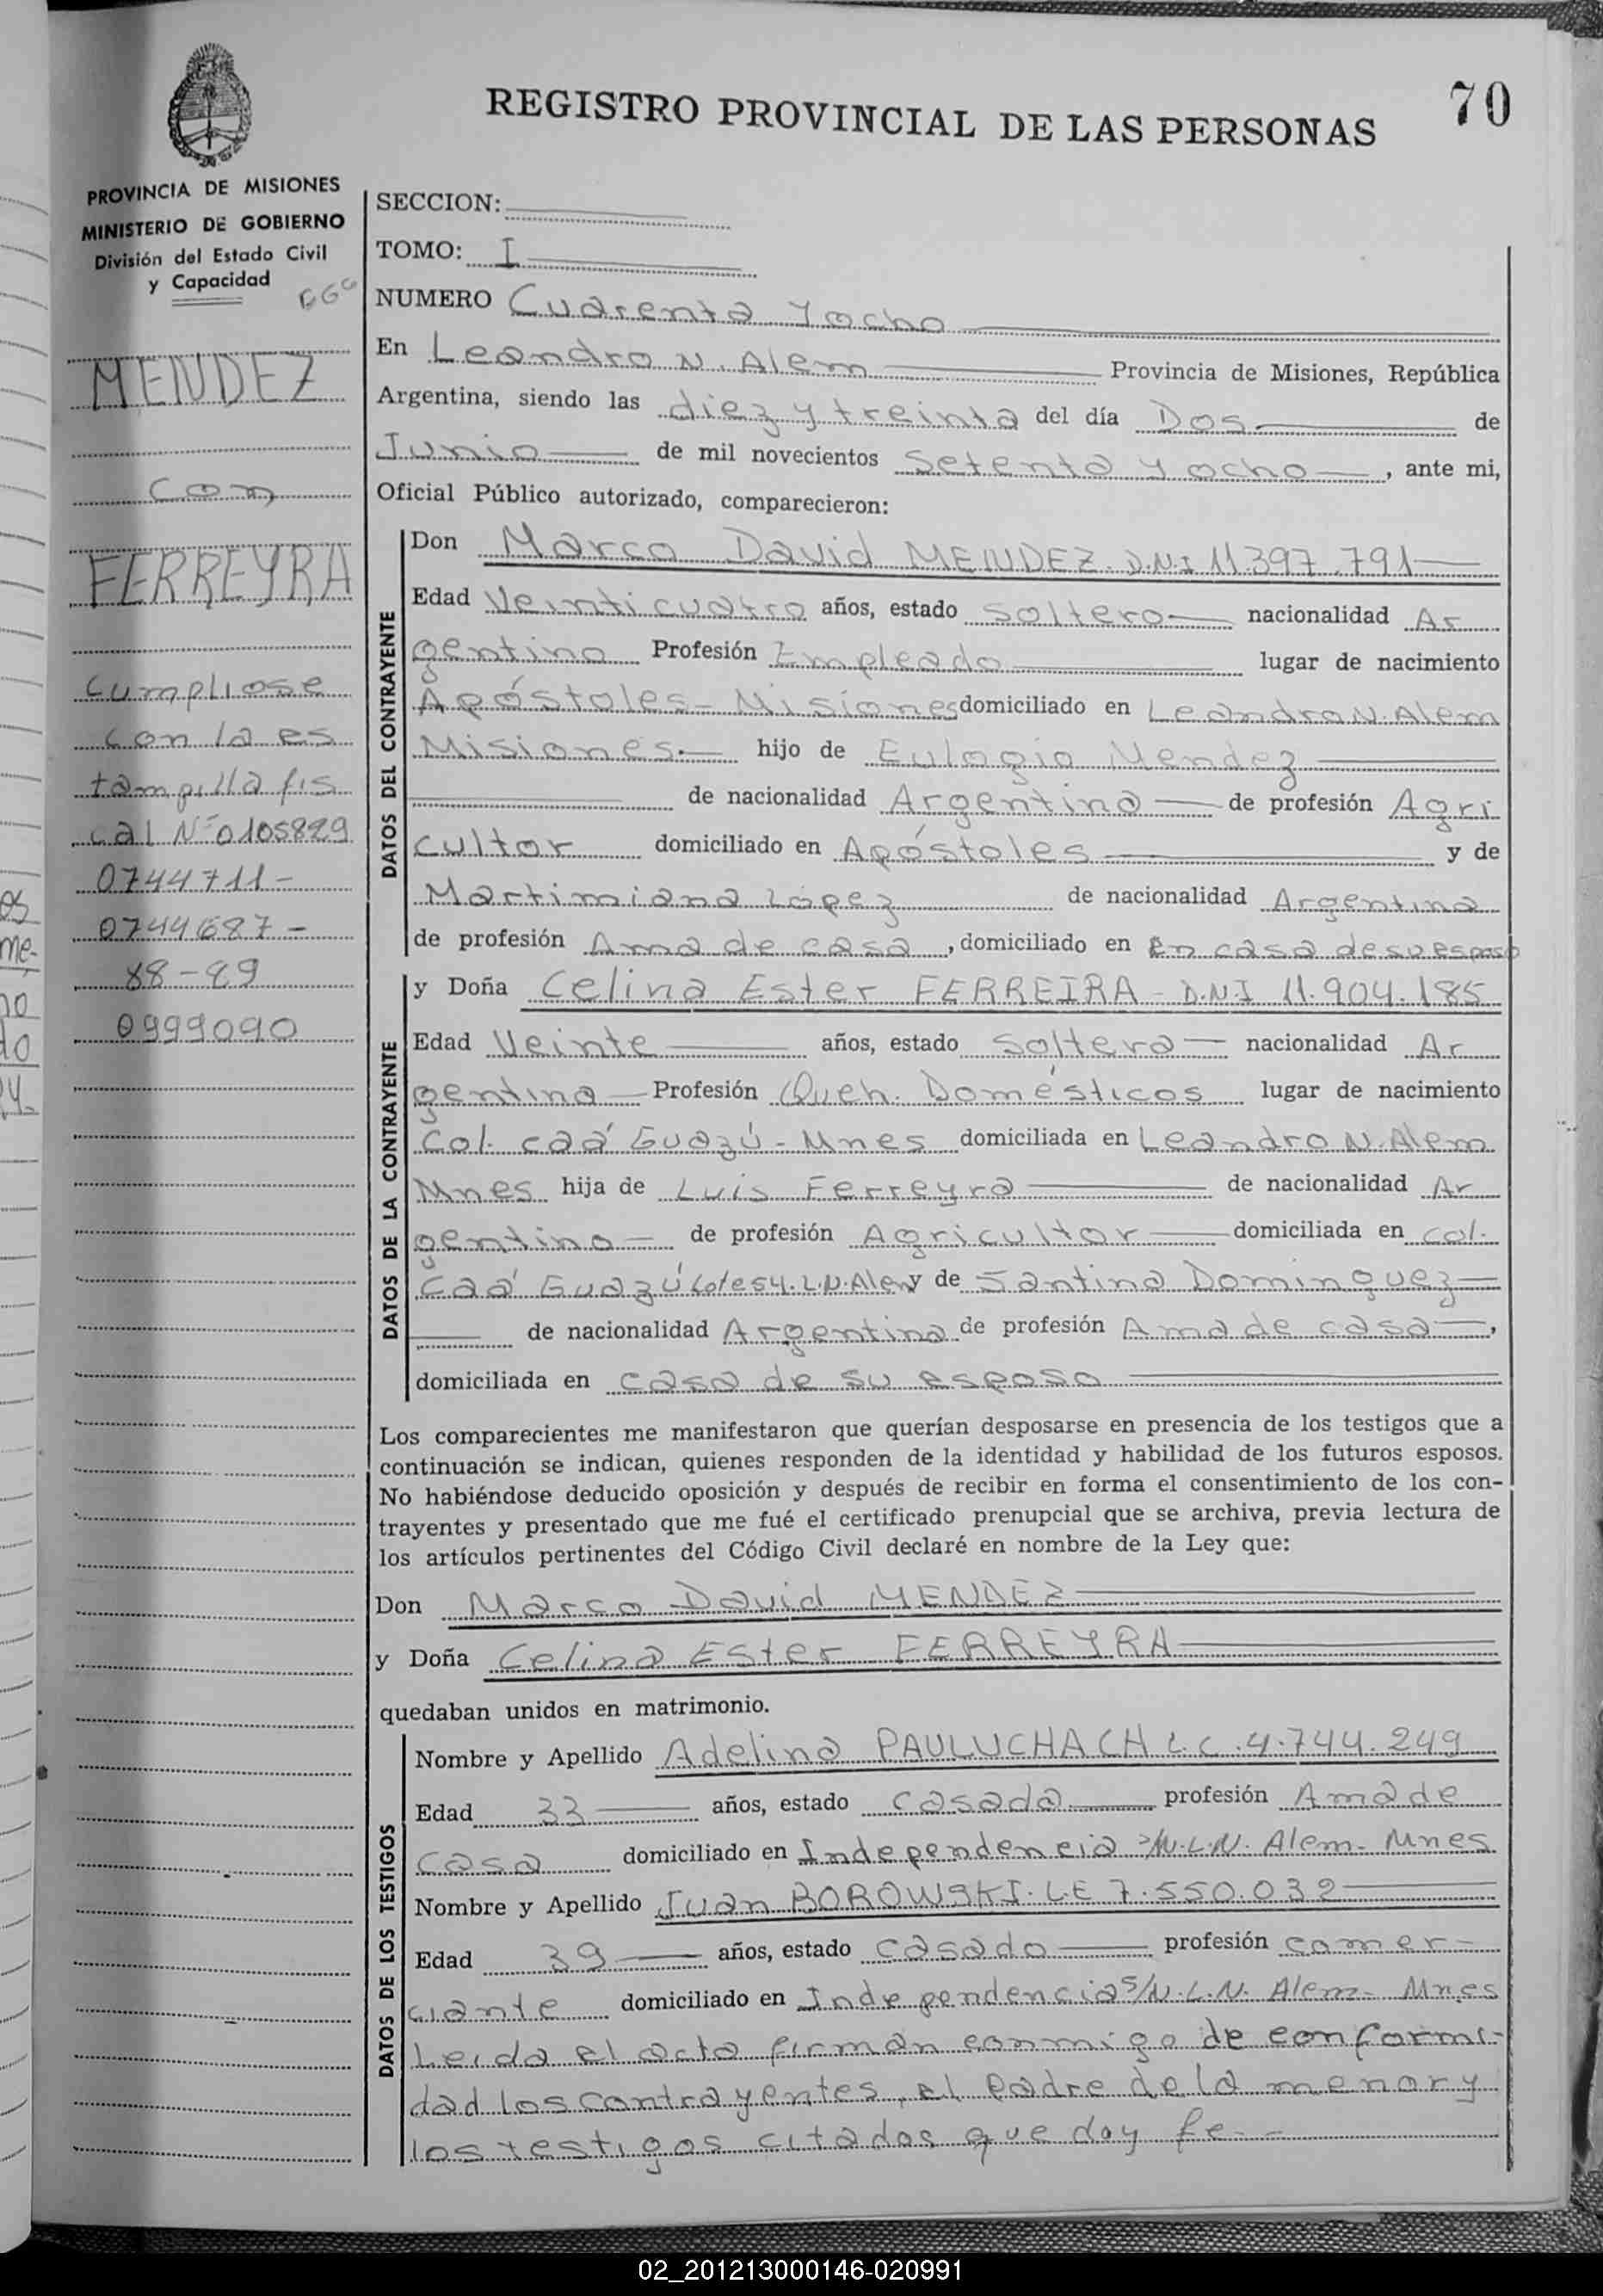 REGISTRO PROVINCIAL DE LAS PERSONAS
70
PROVINCIA DE MISIONES
MINISTERIO DE GOBIERNO
División del Estado Civil
y Capacidad
MENDEZ
con
FERREYRA
cumpliose
con la es
tampilla fis
cal Nº 0105829
0744711-
0744687-
88-89
0999090
SECCION:
TOMO: I
NUMERO Cuarenta y ocho
En Leandro N. Alem Provincia de Misiones, República
Argentina, siendo las diez y treinta del día Dos de
Junio de mil novecientos setenta y ocho, ante mi,
Oficial Público autorizado, comparecieron:
DATOS DEL CONTRAYENTE
Don Marco David MENDEZ. D.N.I 11.397.791
Edad Veinticuatro años, estado soltero nacionalidad Ar
gentino Profesión Empleado lugar de nacimiento
Apóstoles - Misiones domiciliado en Leandro N. Alem
Misiones. hijo de Eulogio Mendez
de nacionalidad Argentina de profesión Agri
cultor domiciliado en Apóstoles y de
Martimiana López de nacionalidad Argentina
de profesión Ama de casa, domiciliado en En casa de su esposo
DATOS DE LA CONTRAYENTE
y Doña Celina Ester FERREIRA - D.N.I 11.904.185
Edad Veinte años, estado soltera nacionalidad Ar
gentina Profesión Queh. Domésticos lugar de nacimiento
Col. caá Guazú - Mnes domiciliada en Leandro N. Alem
Mnes hija de Luis Ferreyra de nacionalidad Ar
gentino de profesión Agricultor domiciliada en col.
Caá Guazú Lote 54. L.N. Alem y de Santina Dominguez
de nacionalidad Argentina de profesión Ama de casa,
domiciliada en casa de su esposo
Los comparecientes me manifestaron que querían desposarse en presencia de los testigos que a
continuación se indican, quienes responden de la identidad y habilidad de los futuros esposos.
No habiéndose deducido oposición y después de recibir en forma el consentimiento de los con-
trayentes y presentado que me fué el certificado prenupcial que se archiva, previa lectura de
los artículos pertinentes del Código Civil declaré en nombre de la Ley que:
Don Marco David MENDEZ
y Doña Celina Ester FERREYRA
quedaban unidos en matrimonio.
DATOS DE LOS TESTIGOS
Nombre y Apellido Adelina PAULUCHACH L.C. 4.744.249
Edad 33 años, estado casada profesión Ama de
casa domiciliado en Independencia S/N. L.N. Alem - Mnes
Nombre y Apellido Juan BOROWSKI. L.E 7.550.032
Edad 39 años, estado casado profesión comer-
ciante domiciliado en Independencia S/N. L.N. Alem - Mnes
Leida el acta firman conmigo de conformi-
dad los contrayentes, el padre de la menor y
los testigos citados que doy fe. -
02_201213000146-020991